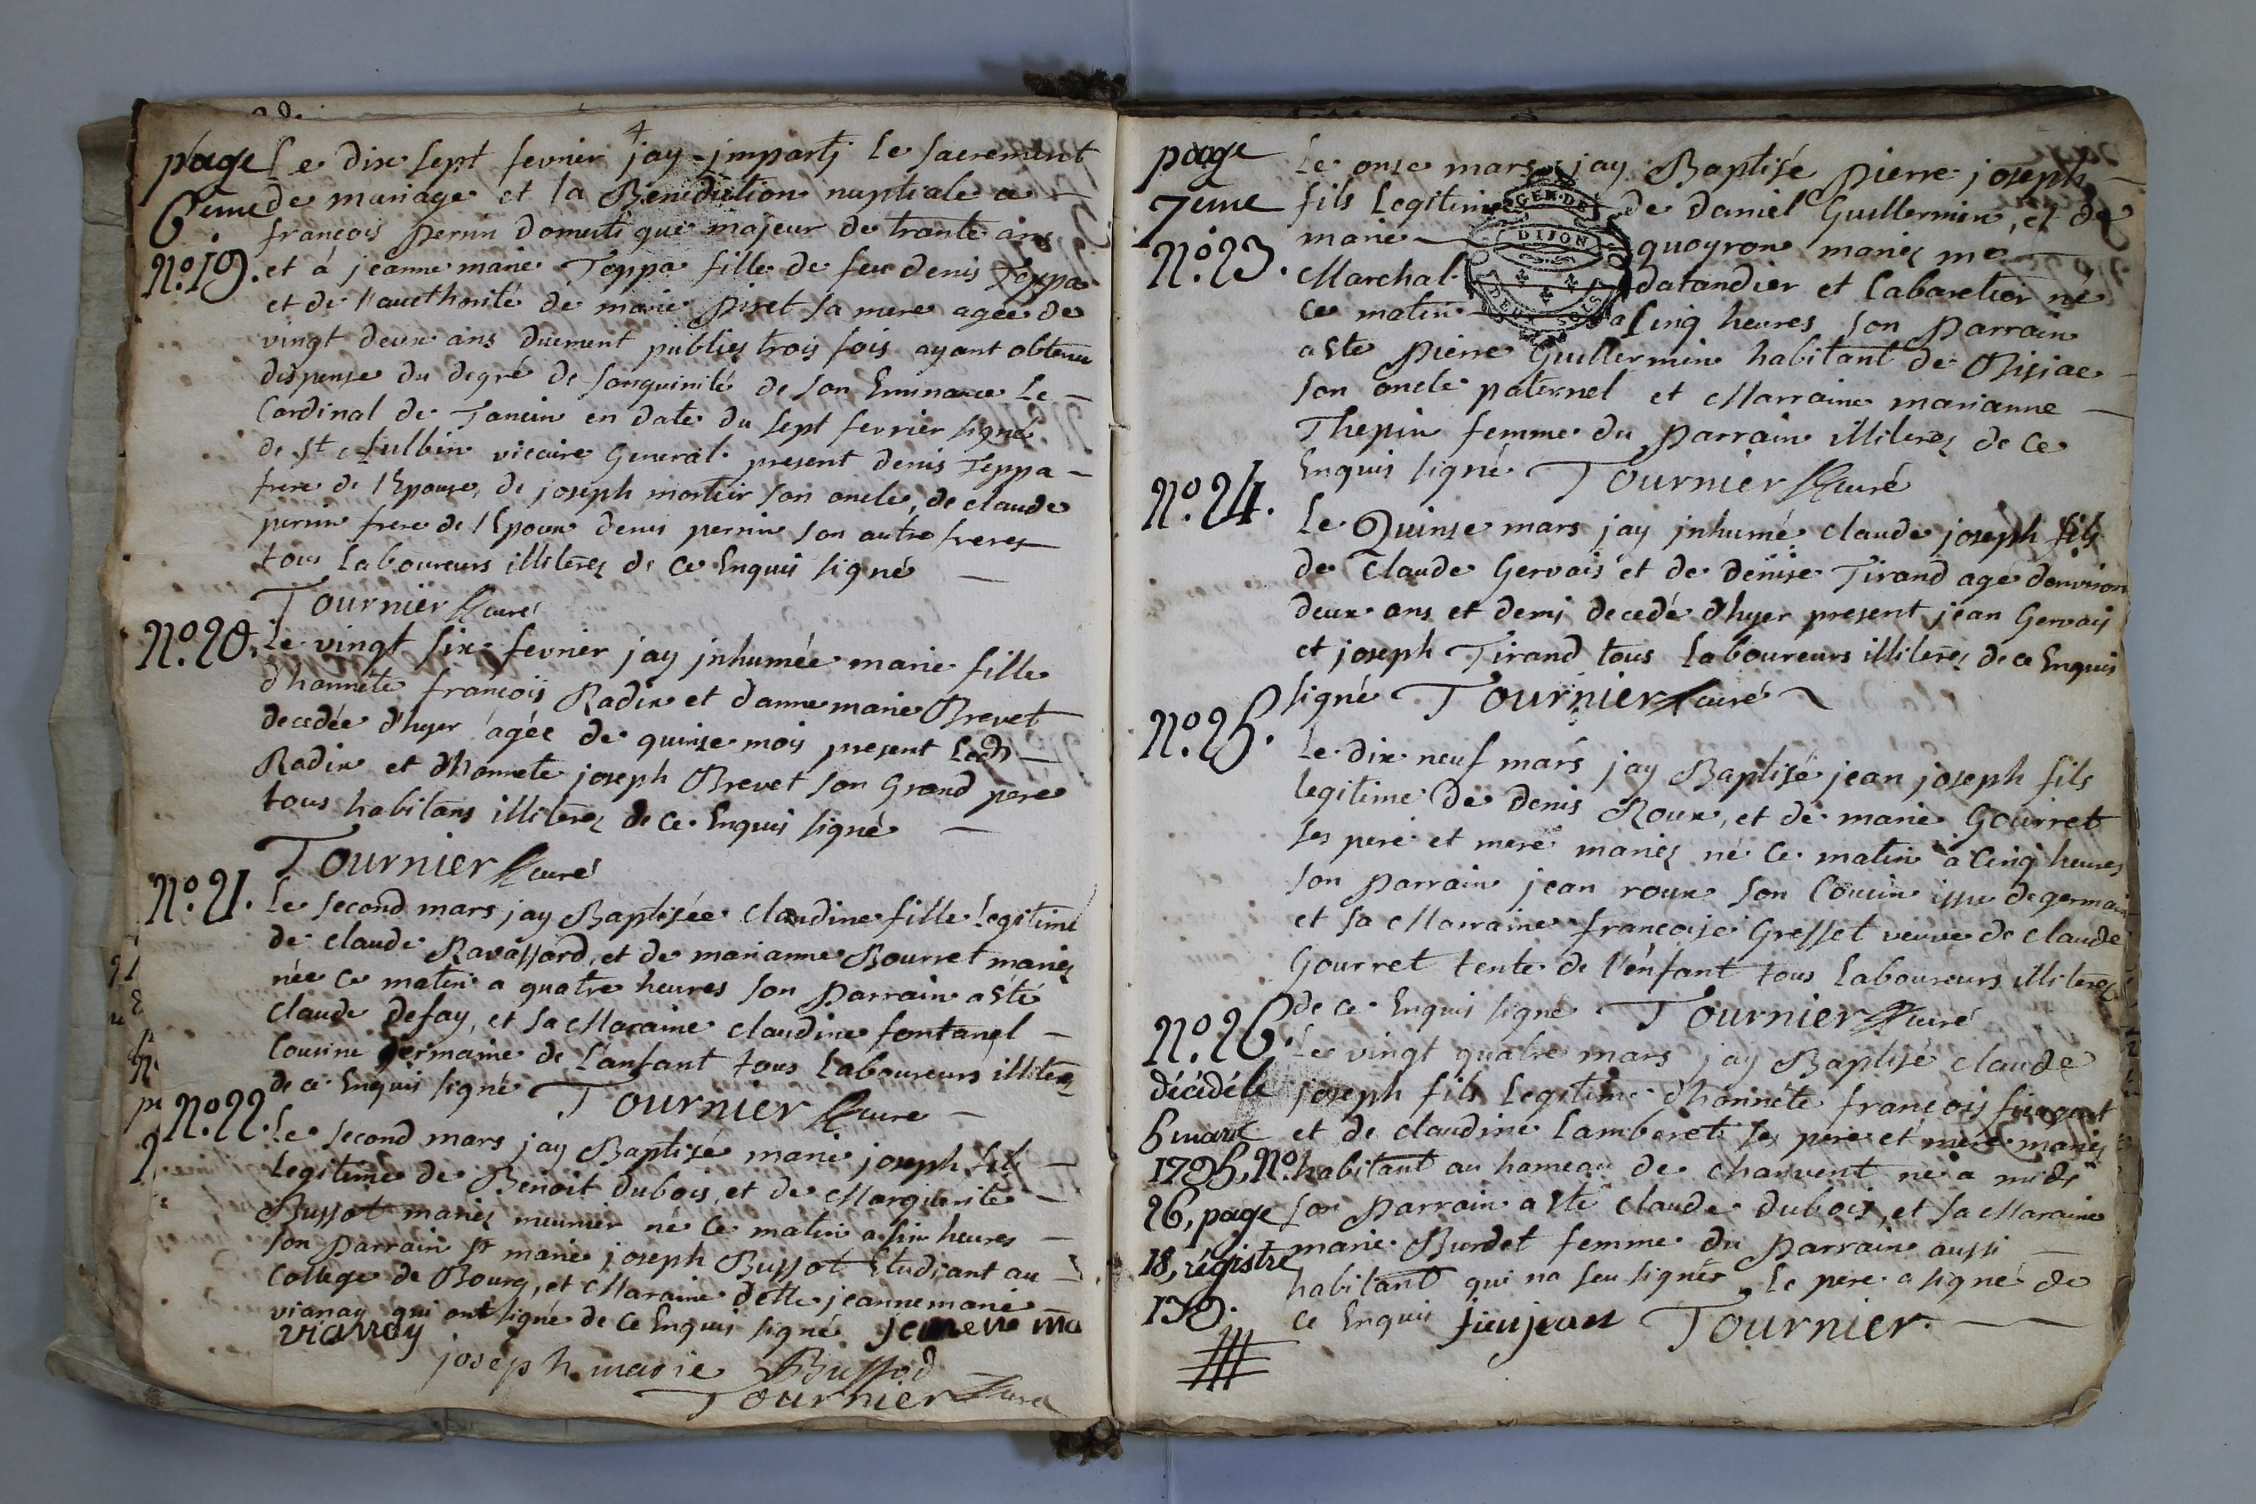 page
6eme
Le dix sept fevrier jay imparti le sacrement
de mariage et la Benediction nuptiale a
françois perrin domestique majeur de trante ans
No. 19. et á jeanne marie Teppa fille de feu denis Teppa
et de l'aucthorité de marie piret sa mere agée de
vingt deux ans duement publies trois fois ayant obtenu
dispense du degré de sanguinité de son Eminance Le
Cardinal de Tancin en date du sept fevrier signé
de St Aulbin vicaire General present denis Teppa
frere de l'Epouse, de joseph mortier son oncle, de claude
perrin frere de l'Epoux denis perrin son autre freres
tous laboureurs illiterez de ce Enquis signé
Tournier curé
No. 20. Le vingt six fevrier jay jnhumée marie fille
d'honnete françois Radix et danne marie Brevet
decedée d'hyer ágée de quinse mois present led
Radix et d'honnete joseph Brevet son Grand pere
tous habitans illiterez de ce Enquis signé
Tournier curé
No. 21. Le second mars jay Baptisée claudine fille Legitime
de claude Ravassard, et de marianne Bourret mariez
née ce matin a quatre heures son parrain a Eté
claude defay, et sa Maraine claudine fontanel
Cousine germaine de L'anfant tous laboureurs illiterez
de ce Enquis signé Tournier curé
No. 22. Le second mars jay Baptisé marie joseph fils
Legitime de Benoit dubois, et de Marguerite
Bussot mariez meunier né ce matin a six heures
son parrain sr marie joseph Bussot Etudiant au
College de Bourg, et Maraine delle jeannemarie
vianay qui ont signé de ce Enquis signé jeanene ma
vianay
joseph marie Bussod
Tournier curé
page
7eme
Le onse mars jay Baptisé pierre joseph
fils Legitime de daniel Guillermin, et de
No. 23. marie quoyron mariez me
Marchal datandier et Cabaretier né
ce matin a Cinq heures son parrain
GEN. DE
DIJON
DEUX SOLS
a Ete pierre Guillermin habitant de Bisiac
son oncle paternel et Marraine marianne
Thepin femme du parrain illiterez de ce
Enquis signé Tournier curé
No. 24. Le Quinse mars jay jnhumé claude joseph fils
de Claude Gervais et de denise Tirand agé d'environ
deux ans et demi decedé d'hyer present jean Gervais
et joseph Tirand tous laboureurs illiterez de ce Enquis
signé Tournier curé
No. 25. Le dix neuf mars jay Baptisé jean joseph fils
legitime de denis Roux, et de marie Gourret
ses pere et mere mariez né ce matin à Cinq heures
son parrain jean roux son Cousin issu de germain
et sa Marraine françoise Gresset veuve de claude
Gourret tente de l'enfant tous laboureurs illiterez
de ce Enquis signé Tournier curé
No. 26. Le vingt quatre mars jay Baptisé claude
joseph fils Legitime d'honnéte françois
et de claudine Lamberet ses pere et mere mariez
habitant au hameau de charvent né a midi
son parrain a Eté claude dubois, et sa Maraine
marie Burdet femme du parrain aussi
habitant qui na seu signér, le pere a signé de
ce Enquis Tournier.
décédé le
5 mars
No.
26, page
18, régistre